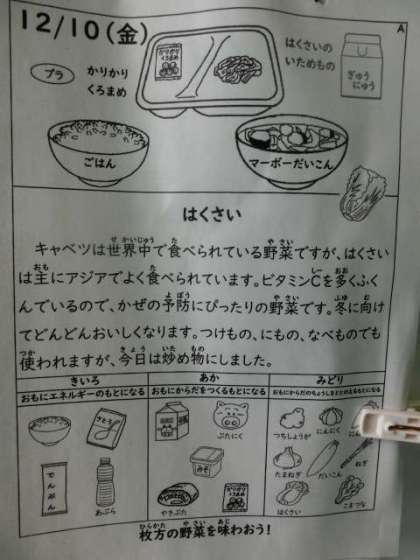 12/10(金)
A
プラ
かりかり
くろまめ
かりかり
くろまめ
はくさいの
いためもの
ぎゅう
にゅう
ごはん
マーボーだいこん
はくさい
キャベツは世界中で食べられている野菜ですが、はくさい
は主にアジアでよく食べられています。ビタミンCを多くふく
んでいるので、かぜの予防にぴったりの野菜です。冬に向け
てどんどんおいしくなります。つけもの、にもの、なべものでも
使われますが、今日は炒め物にしました。
きいろ
あか
みどり
おもにエネルギーのもとになる
おもにからだをつくるもとになる
おもにからだのちょうしをととのえるもとになる
さとう
ぶたにく
つちしょうが
にんにく
みそ
でんぷん
あぶら
やきぶた
かりかり
くろまめ
たまねぎ
だいこん
ねぎ
はくさい
こまつな
枚方の野菜を味わおう!